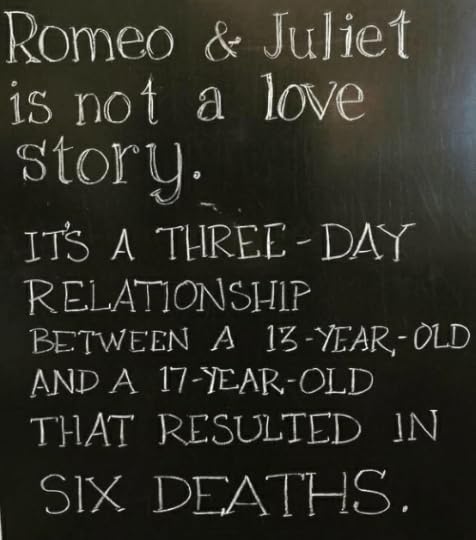 Romeo & Juliet
is not a love
story.
IT'S A THREE-DAY
RELATIONSHIP
BETWEEN A 13-YEAR,-OLD
AND A 17-YEAR-OLD
THAT RESULTED IN
SIX DEATHS.